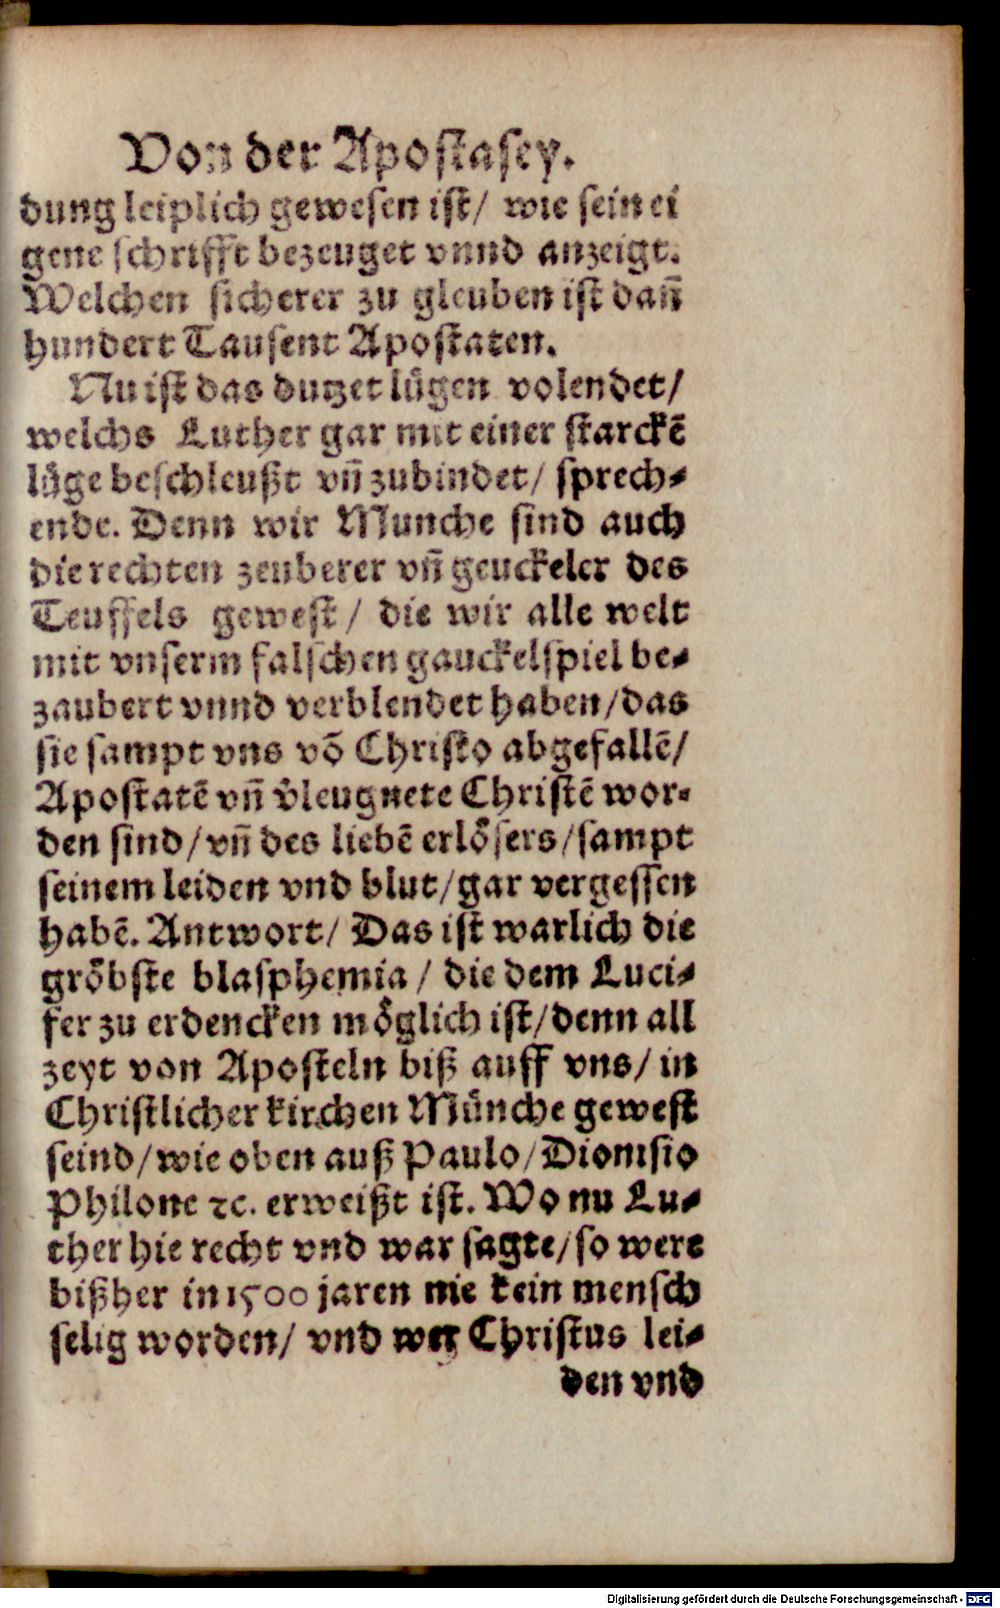 Von der Apostasey.
dung leiplich gewesen ist/ wie sein ei
gene schrifft bezeuget vnnd anzeigt.
Welchen sicherer zu gleuben ist dañ
hundert Tausent Apostaten.
Nu ist das dutzet lügen volendet/
welchs Luther gar mit einer starckē
lüge beschleußt vñ zubindet/ sprech-
ende. Denn wir Munche sind auch
die rechten zeuberer vñ geuckeler des
Teuffels gewest/ die wir alle welt
mit vnserm falschen gauckelspiel be-
zaubert vnnd verblendet haben/das
sie sampt vns võ Christo abgefallē/
Apostatē vñ v̓leugnete Christē wor-
den sind/vñ des liebē erlösers/sampt
seinem leiden vnd blut/gar vergessen
habē. Antwort/ Das ist warlich die
gröbste blasphemia/ die dem Luci-
fer zu erdencken möglich ist/denn all
zeyt von Aposteln biß auff vns/ in
Christlicher kirchen Münche gewest
seind/wie oben auß Paulo/Dionisio
Philone ꝛc. erweißt ist. Wo nu Lu-
ther hie recht vnd war sagte/so were
bißher in 1500 jaren nie kein mensch
selig worden/ vnd wer Christus lei-
den vnd
Digitalisierung gefördert durch die Deutsche Forschungsgemeinschaft - DFG